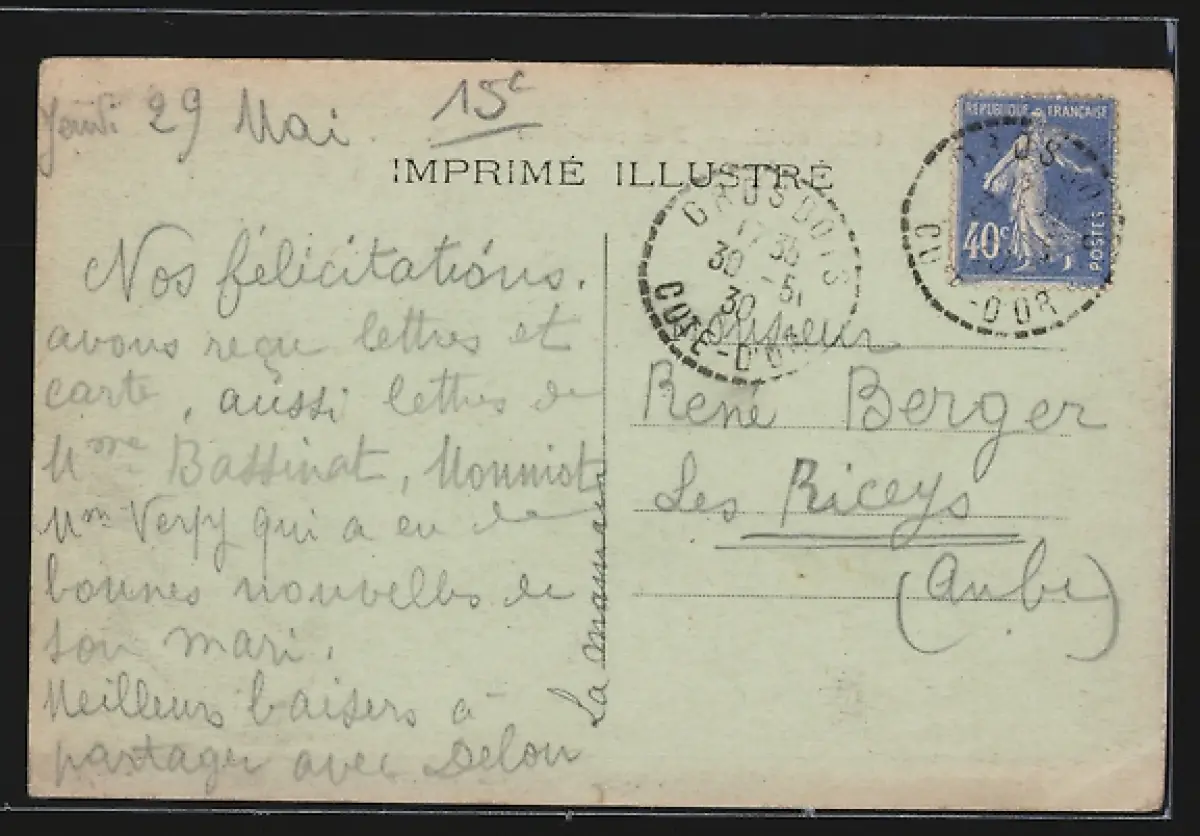 Jeudi 29 Mai 15c
IMPRIMÉ ILLUSTRÉ
REPUBLIQUE FRANÇAISE
40c
POSTES
GROSBOIS
17 35
30 -5
30
COTE-D'OR
-D'OR
Nos félicitations.
avons reçu lettres et
carte, aussi lettres de
Mme Bassinat, Monniot
Mme Verpy qui a eu de
bonnes nouvelles de
son mari.
Meilleurs baisers à
partager avec Delon
La maman
Monsieur
René Berger
Les Riceys
(Aube)